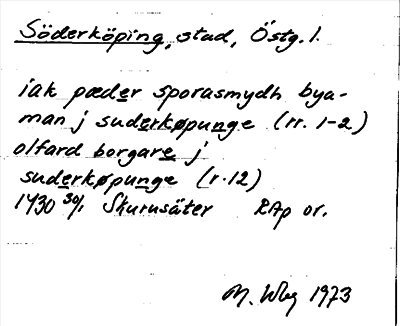 Söderköping, stad, Östg. l.
iak pæder sporasmydh bya-
man j suderkøpunge (rr. 1-2)
olfard borgare j
suderkøpunge (r.12)
1430 30/1 Skurusäter RAp or.
M. Wbg 1973